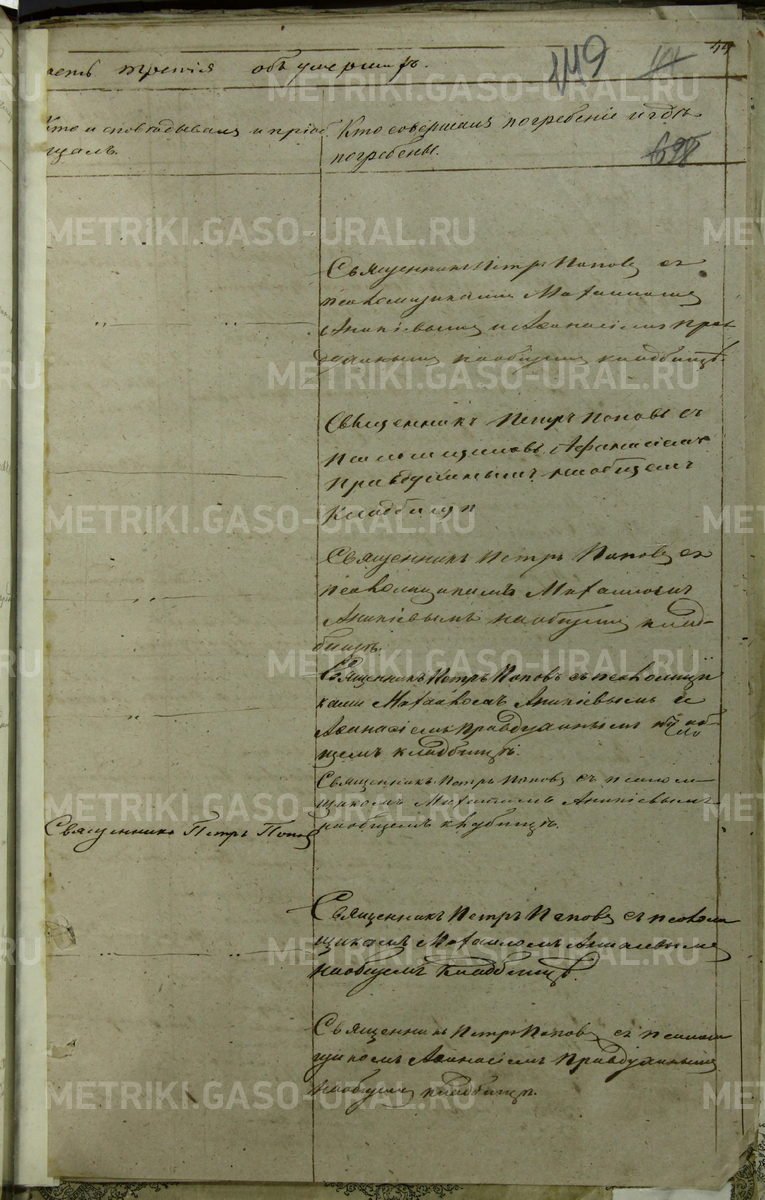 44
149
часть третія объ умершихъ.
Кто исповѣдывалъ и пріоб-
щалъ.
Кто совершалъ погребеніе и гдѣ
погребены.
698
Священникъ Петръ Поповъ съ
псаломщиками Михаиломъ
Ананіевымъ и Аѳанасіемъ Прав-
духинымъ на общемъ кладбищѣ.
Священникъ Петръ Поповъ съ
псаломщикомъ Афанасіемъ
Правдухинымъ на общемъ
кладбищѣ
Священникъ Петръ Поповъ съ
псаломщикомъ Михаиломъ
Ананіевымъ на общемъ клад-
бищѣ.
Священникъ Петръ Поповъ съ псаломщи-
ками Михаиломъ Ананіевымъ и
Аѳанасіемъ Правдухинымъ на об-
щемъ кладбищѣ.
Священникъ Петръ Поповъ съ псалом-
щикомъ Михаиломъ Ананіевымъ
на общемъ кладбищѣ.
Священникъ Петръ Поповъ
Священникъ Петръ Поповъ съ псалом-
щикомъ Михаиломъ Ананіевымъ
на общемъ кладбищѣ.
Священникъ Петръ Поповъ съ псалом-
щикомъ Аѳанасіемъ Правдухинымъ
на общемъ кладбищѣ.
METRIKI.GASO-URAL.RU